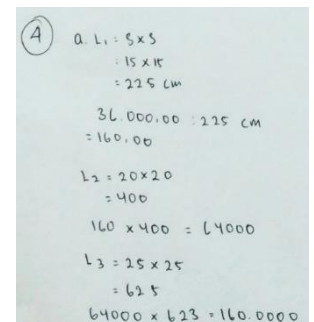 4 a. L1 : S x S
: 15 x 15
= 225 cm
36.000,00 : 225 cm
= 160,00
L2 = 20 x 20
= 400
160 x 400 = 64000
L3 = 25 x 25
= 625
64000 x 623 = 160.0000